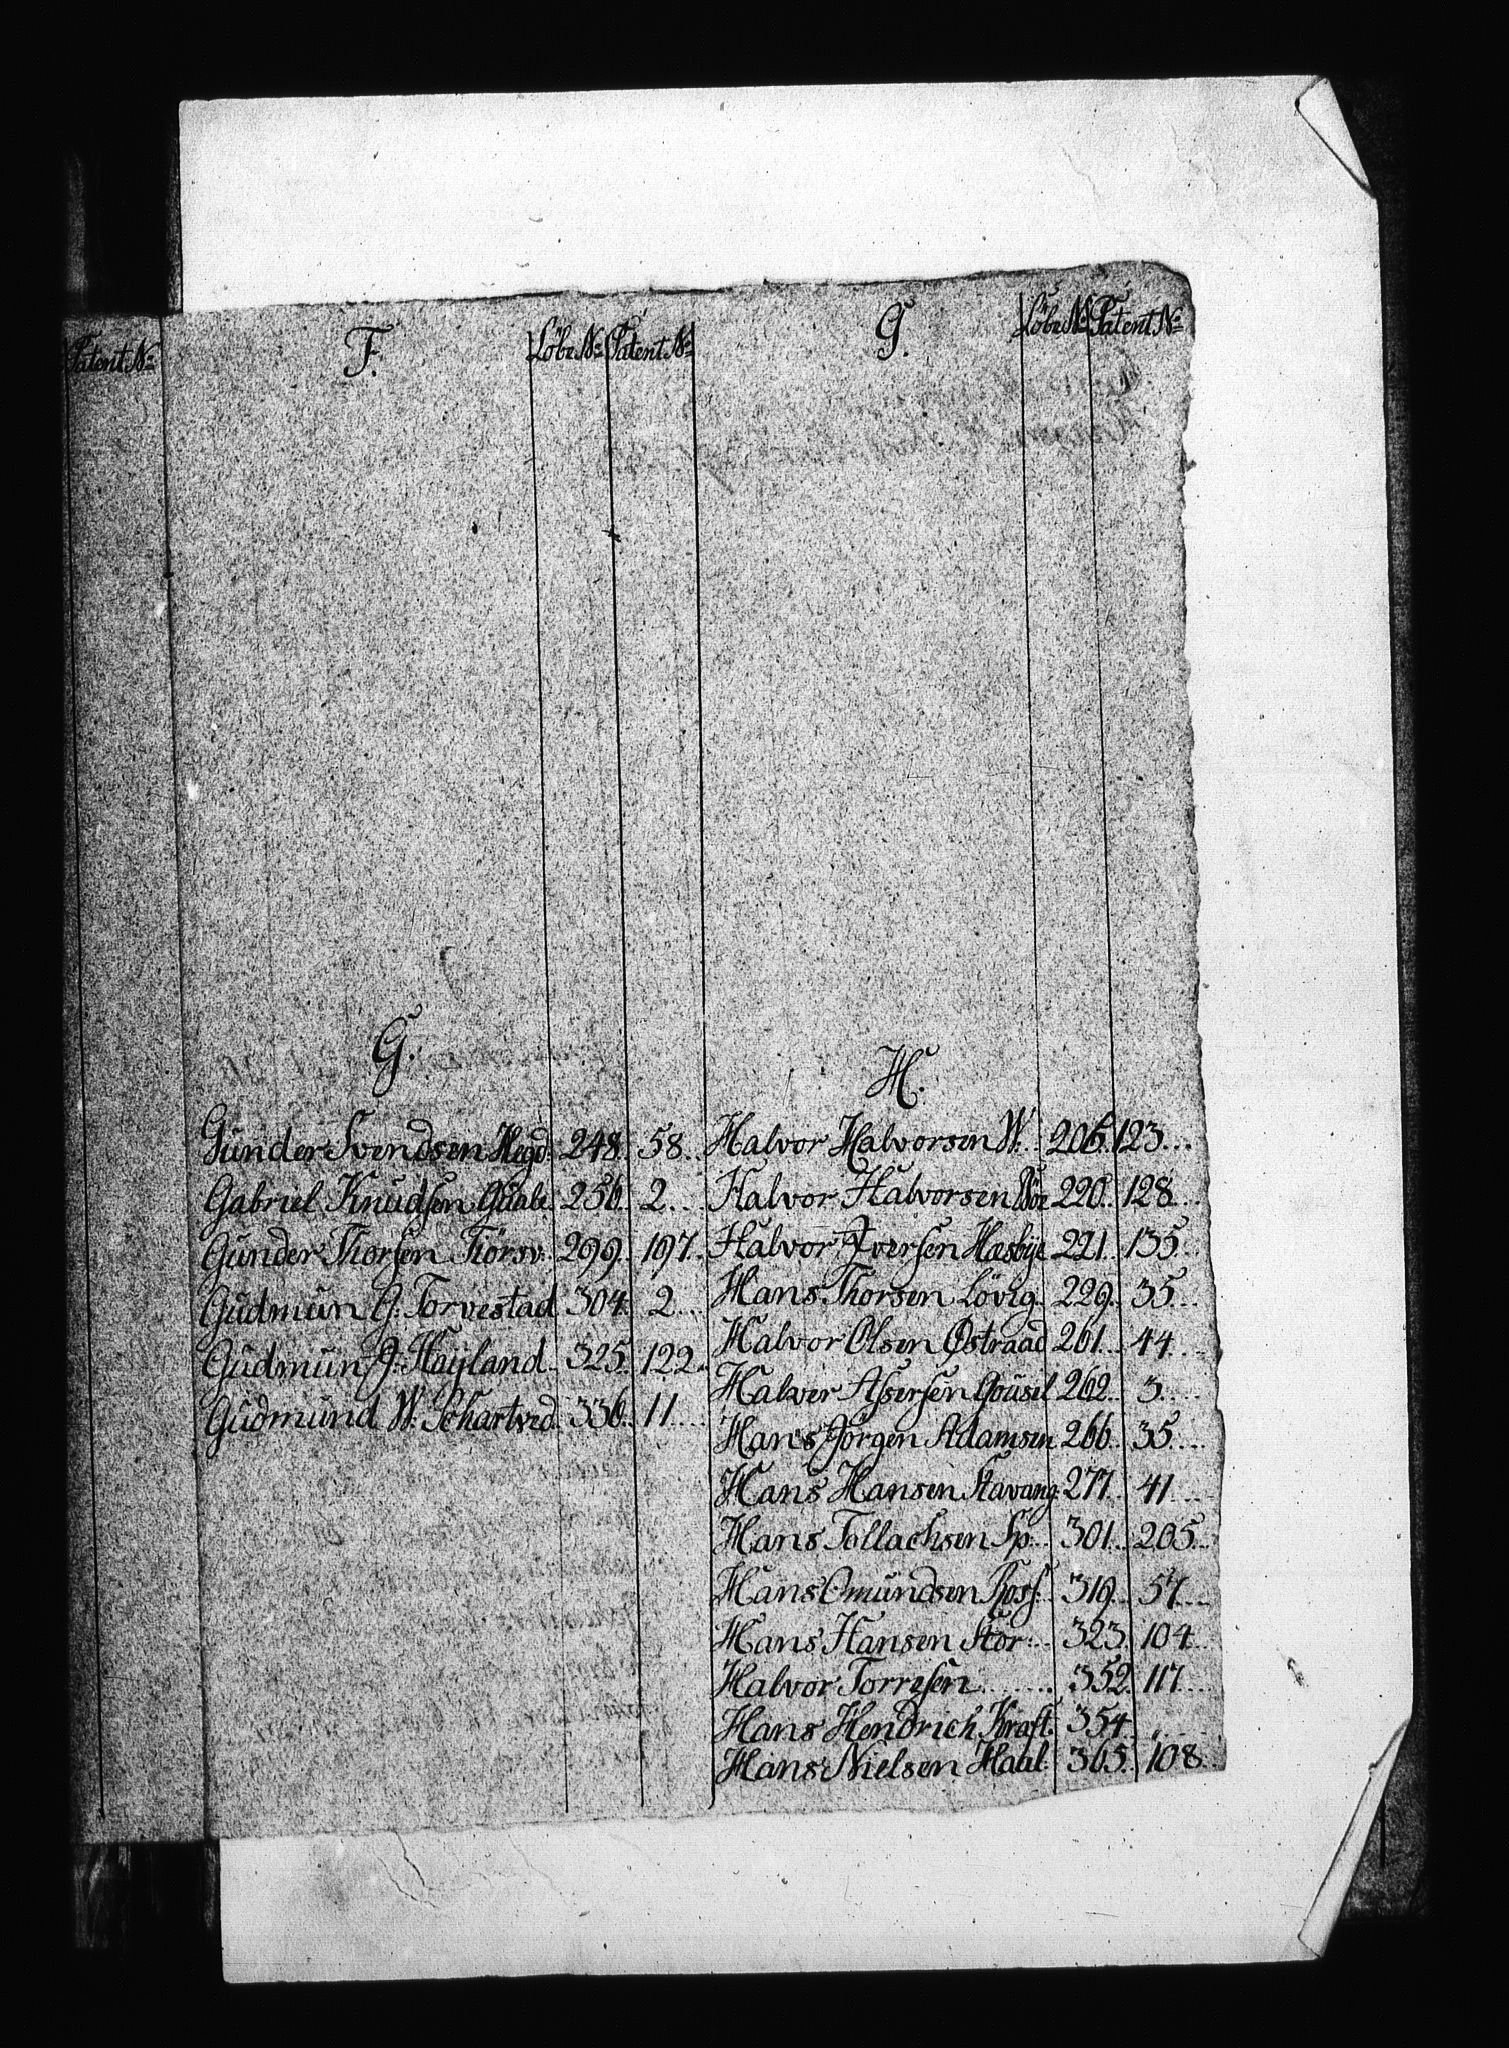 Patent No
F. Löbe No Patent No
G.
Gunder Svendsen Hegd. 248. 58.
Gabriel Knudsen Gaabe. 256. 2.
Gunder Thorsen Tiörsv. 299. 197.
Gudmun G. Torvestad 304. 2.
Gudmun J. Høyland. 325. 122.
Gudmund W. Schartved. 336. 11.
G. Löbe No Patent No
H.
Halvor Halvorsen W. 206. 123.
Halvor Halvorsen 220. 128.
Halvor Iversen Hæsbye 221. 135.
Hans Thorsen Lövig. 229. 35.
Halvor Olsen Østraad 261. 44.
Halver Assersen Gousel 262. 3.
Hans Jörgen Adamsen 266. 35.
Hans Hansen Stavang. 277. 41.
Hans Tollachsen Sp. 301. 205.
Hans Omundsen Ross. 319. 57.
Hans Hansen Stor. 323. 104.
Halvor Torresen 352. 117.
Hans Hendrich Kraft. 354. "
Hans Nielsen Haal. 365. 108.